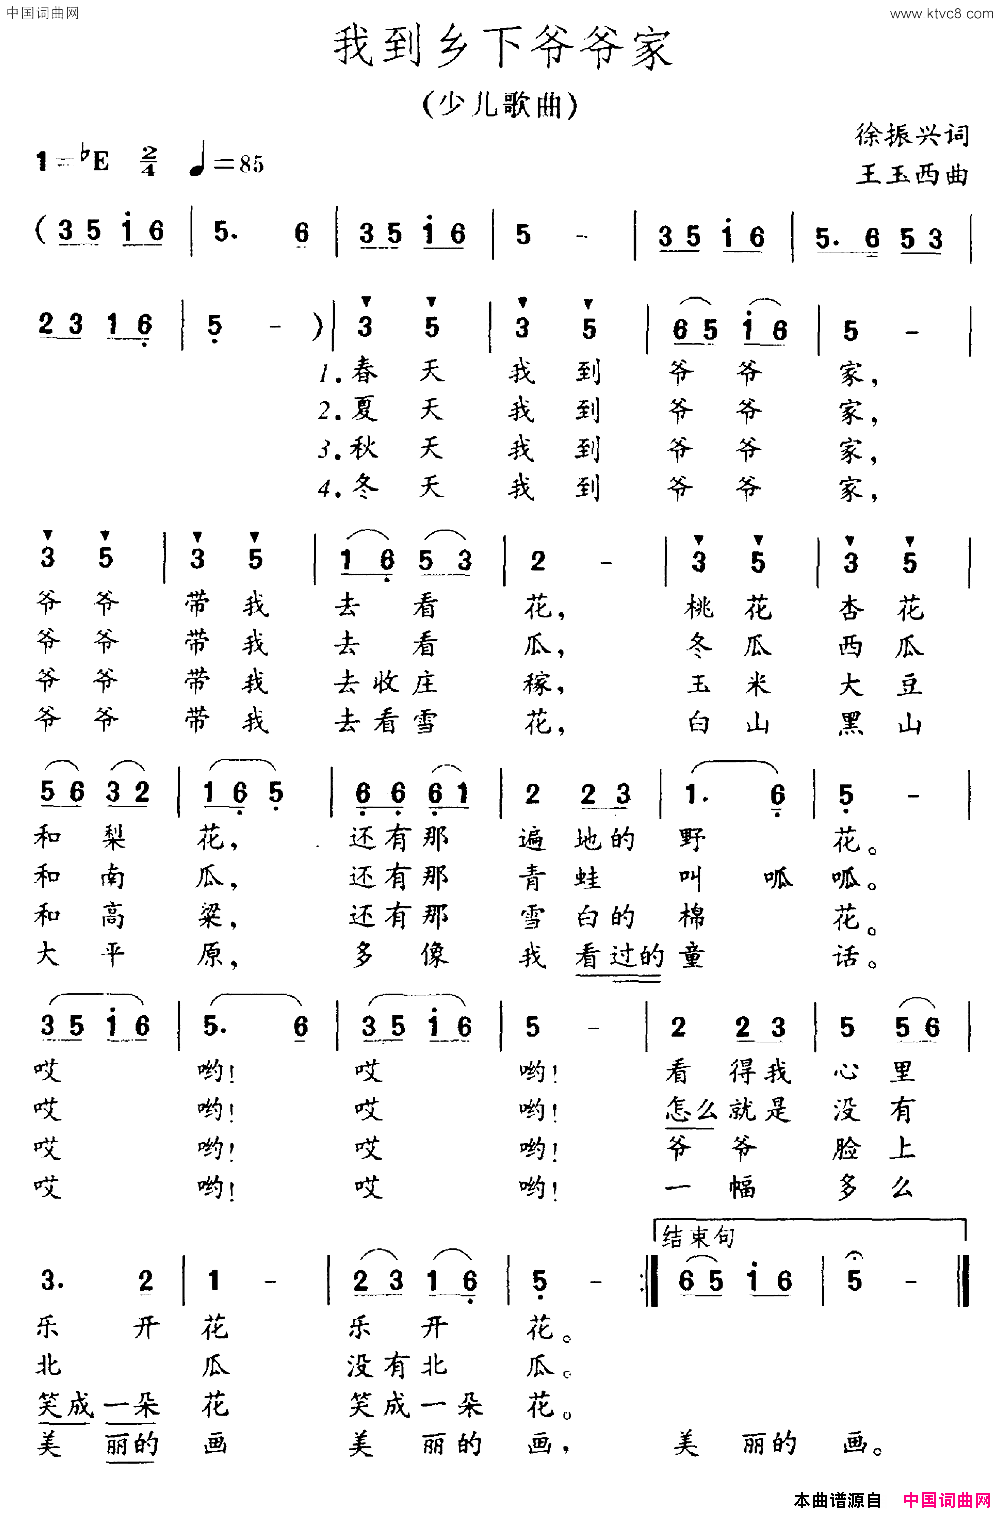 中国词曲网
www.ktvc8.com
我到乡下爷爷家
(少儿歌曲)
徐振兴词
1=♭E 2/4 ♩=85
王玉西曲
(3 5 i 6 | 5. 6 | 3 5 i 6 | 5 - | 3 5 i 6 | 5. 6 5 3 |
2 3 1 6̣ | 5̣ - ) | 3 5 | 3 5 | 6 5 i 6 | 5 - |
1.春 天 我 到 爷 爷 家,
2.夏 天 我 到 爷 爷 家,
3.秋 天 我 到 爷 爷 家,
4.冬 天 我 到 爷 爷 家,
3 5 | 3 5 | 1 6̣ 5 3 | 2 - | 3 5 | 3 5 |
爷 爷 带 我 去 看 花, 桃 花 杏 花
爷 爷 带 我 去 看 瓜, 冬 瓜 西 瓜
爷 爷 带 我 去 收 庄 稼, 玉 米 大 豆
爷 爷 带 我 去 看 雪 花, 白 山 黑 山
5 6 3 2 | 1 6̣ 5̣ | 6̣ 6̣ 6̣ 1 | 2 2 3 | 1. 6̣ | 5̣ - |
和 梨 花, 还 有 那 遍 地 的 野 花。
和 南 瓜, 还 有 那 青 蛙 叫 呱 呱。
和 高 粱, 还 有 那 雪 白 的 棉 花。
大 平 原, 多 像 我 看 过 的 童 话。
3 5 i 6 | 5. 6 | 3 5 i 6 | 5 - | 2 2 3 | 5 5 6 |
哎 哟! 哎 哟! 看 得 我 心 里
哎 哟! 哎 哟! 怎 么 就 是 没 有
哎 哟! 哎 哟! 爷 爷 脸 上
哎 哟! 哎 哟! 一 幅 多 么
结束句
3. 2 | 1 - | 2 3 1 6̣ | 5̣ - :| 6 5 i 6 | 5 - |
乐 开 花 乐 开 花。
北 瓜 没 有 北 瓜。
笑 成 一 朵 花 笑 成 一 朵 花。
美 丽 的 画 美 丽 的 画, 美 丽 的 画。
本曲谱源自 中国词曲网